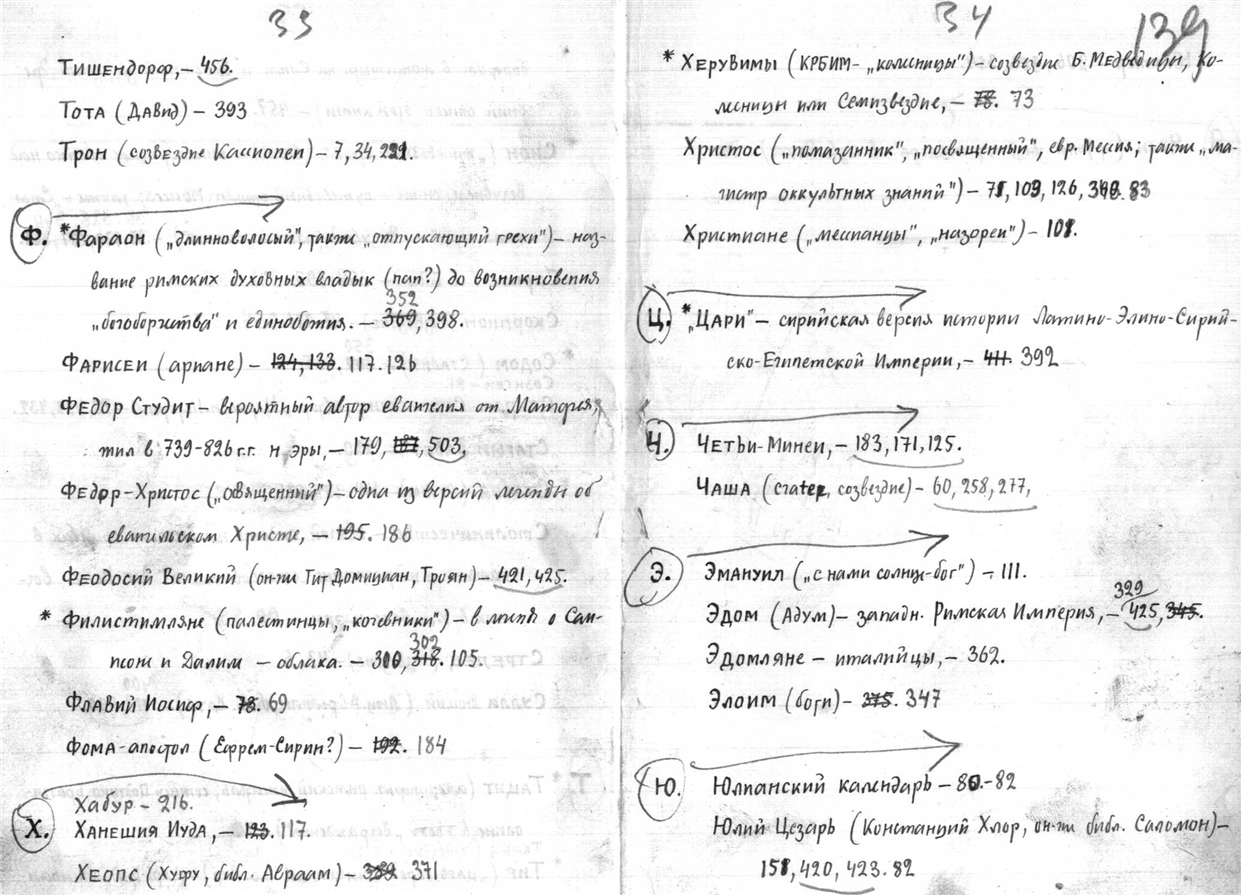 33
Тишендорф, — 456.
Тота (Давид) — 393
Трон (созвездие Кассиопеи) — 7, 34, 221.
Ф. *Фараон („длинноволосый", также „отпускающий грехи") — наз-
вание римских духовных владык (пап?) до возникновения
352
„богоборчества" и единобожия. — 369, 398.
Фарисеи (ариане) — 124, 133. 117. 126
Федор Студит — вероятный автор евангелия от Матфея,
жил в 739-826 г.г. н эры, — 179, 187, 503.
Федор-Христос („освященний") — одна из версий легенды об
евангильском Христе, — 195. 186
Феодосий Великий (он-же Тит Домициан, Троян) — 421, 425.
* Филистимляне (палестинцы, „кочевники") — в легенде о Сам-
302
псоне и Далиле — облака. — 300, 318. 105.
Флавий Иосиф, — 78. 69
Фома-апостол (Ефрем-Сирин?) — 192. 184
Хабур — 216.
Х. Ханешия Иуда, — 123. 117.
Хеопс (Хуфу, библ. Авраам) — 389 371
34
139
* Херувимы (КРБИМ — „колесницы") — созвездие Б. Медведицы, Ко-
лесницы или Семизвездие, — 78. 73
Христос („помазанник", „посвященный", евр. Мессия; также „ма-
гистр оккультных знаний") — 71, 109, 126, 340. 83
Христиане („мессианцы", „назореи") — 101.
Ц. *„Цари" — сирийская версия истории Латино-Элино-Сирий-
ско-Египетской Империи, — 411. 392
Ч. Четьи-Минеи, — 183, 171, 125.
Чаша (crater, созвездие) — 60, 258, 277,
Э. Эмануил („с нами солнце-бог") — 111.
329
Эдом (Адум) — западн. Римская Империя, — 425, 345.
Эдомляне — италийцы, — 362.
Элоим (боги) — 375. 347
Ю. Юлианский календарь — 80-82
Юлий Цезарь (Констанций Хлор, он-же библ. Саломон) —
151, 420, 423. 82